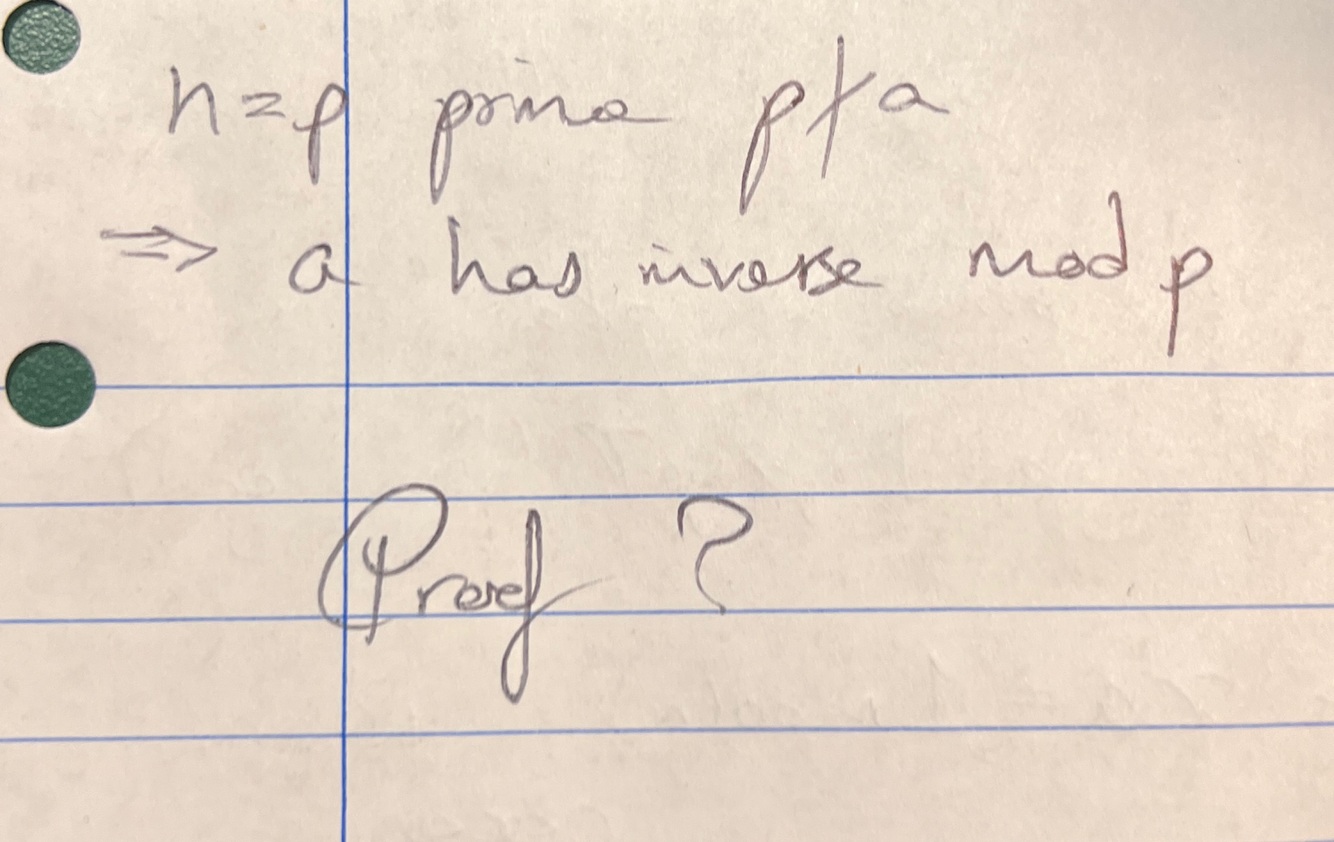 n=p prime p∤a
⇒ a has inverse mod p
Proof ?